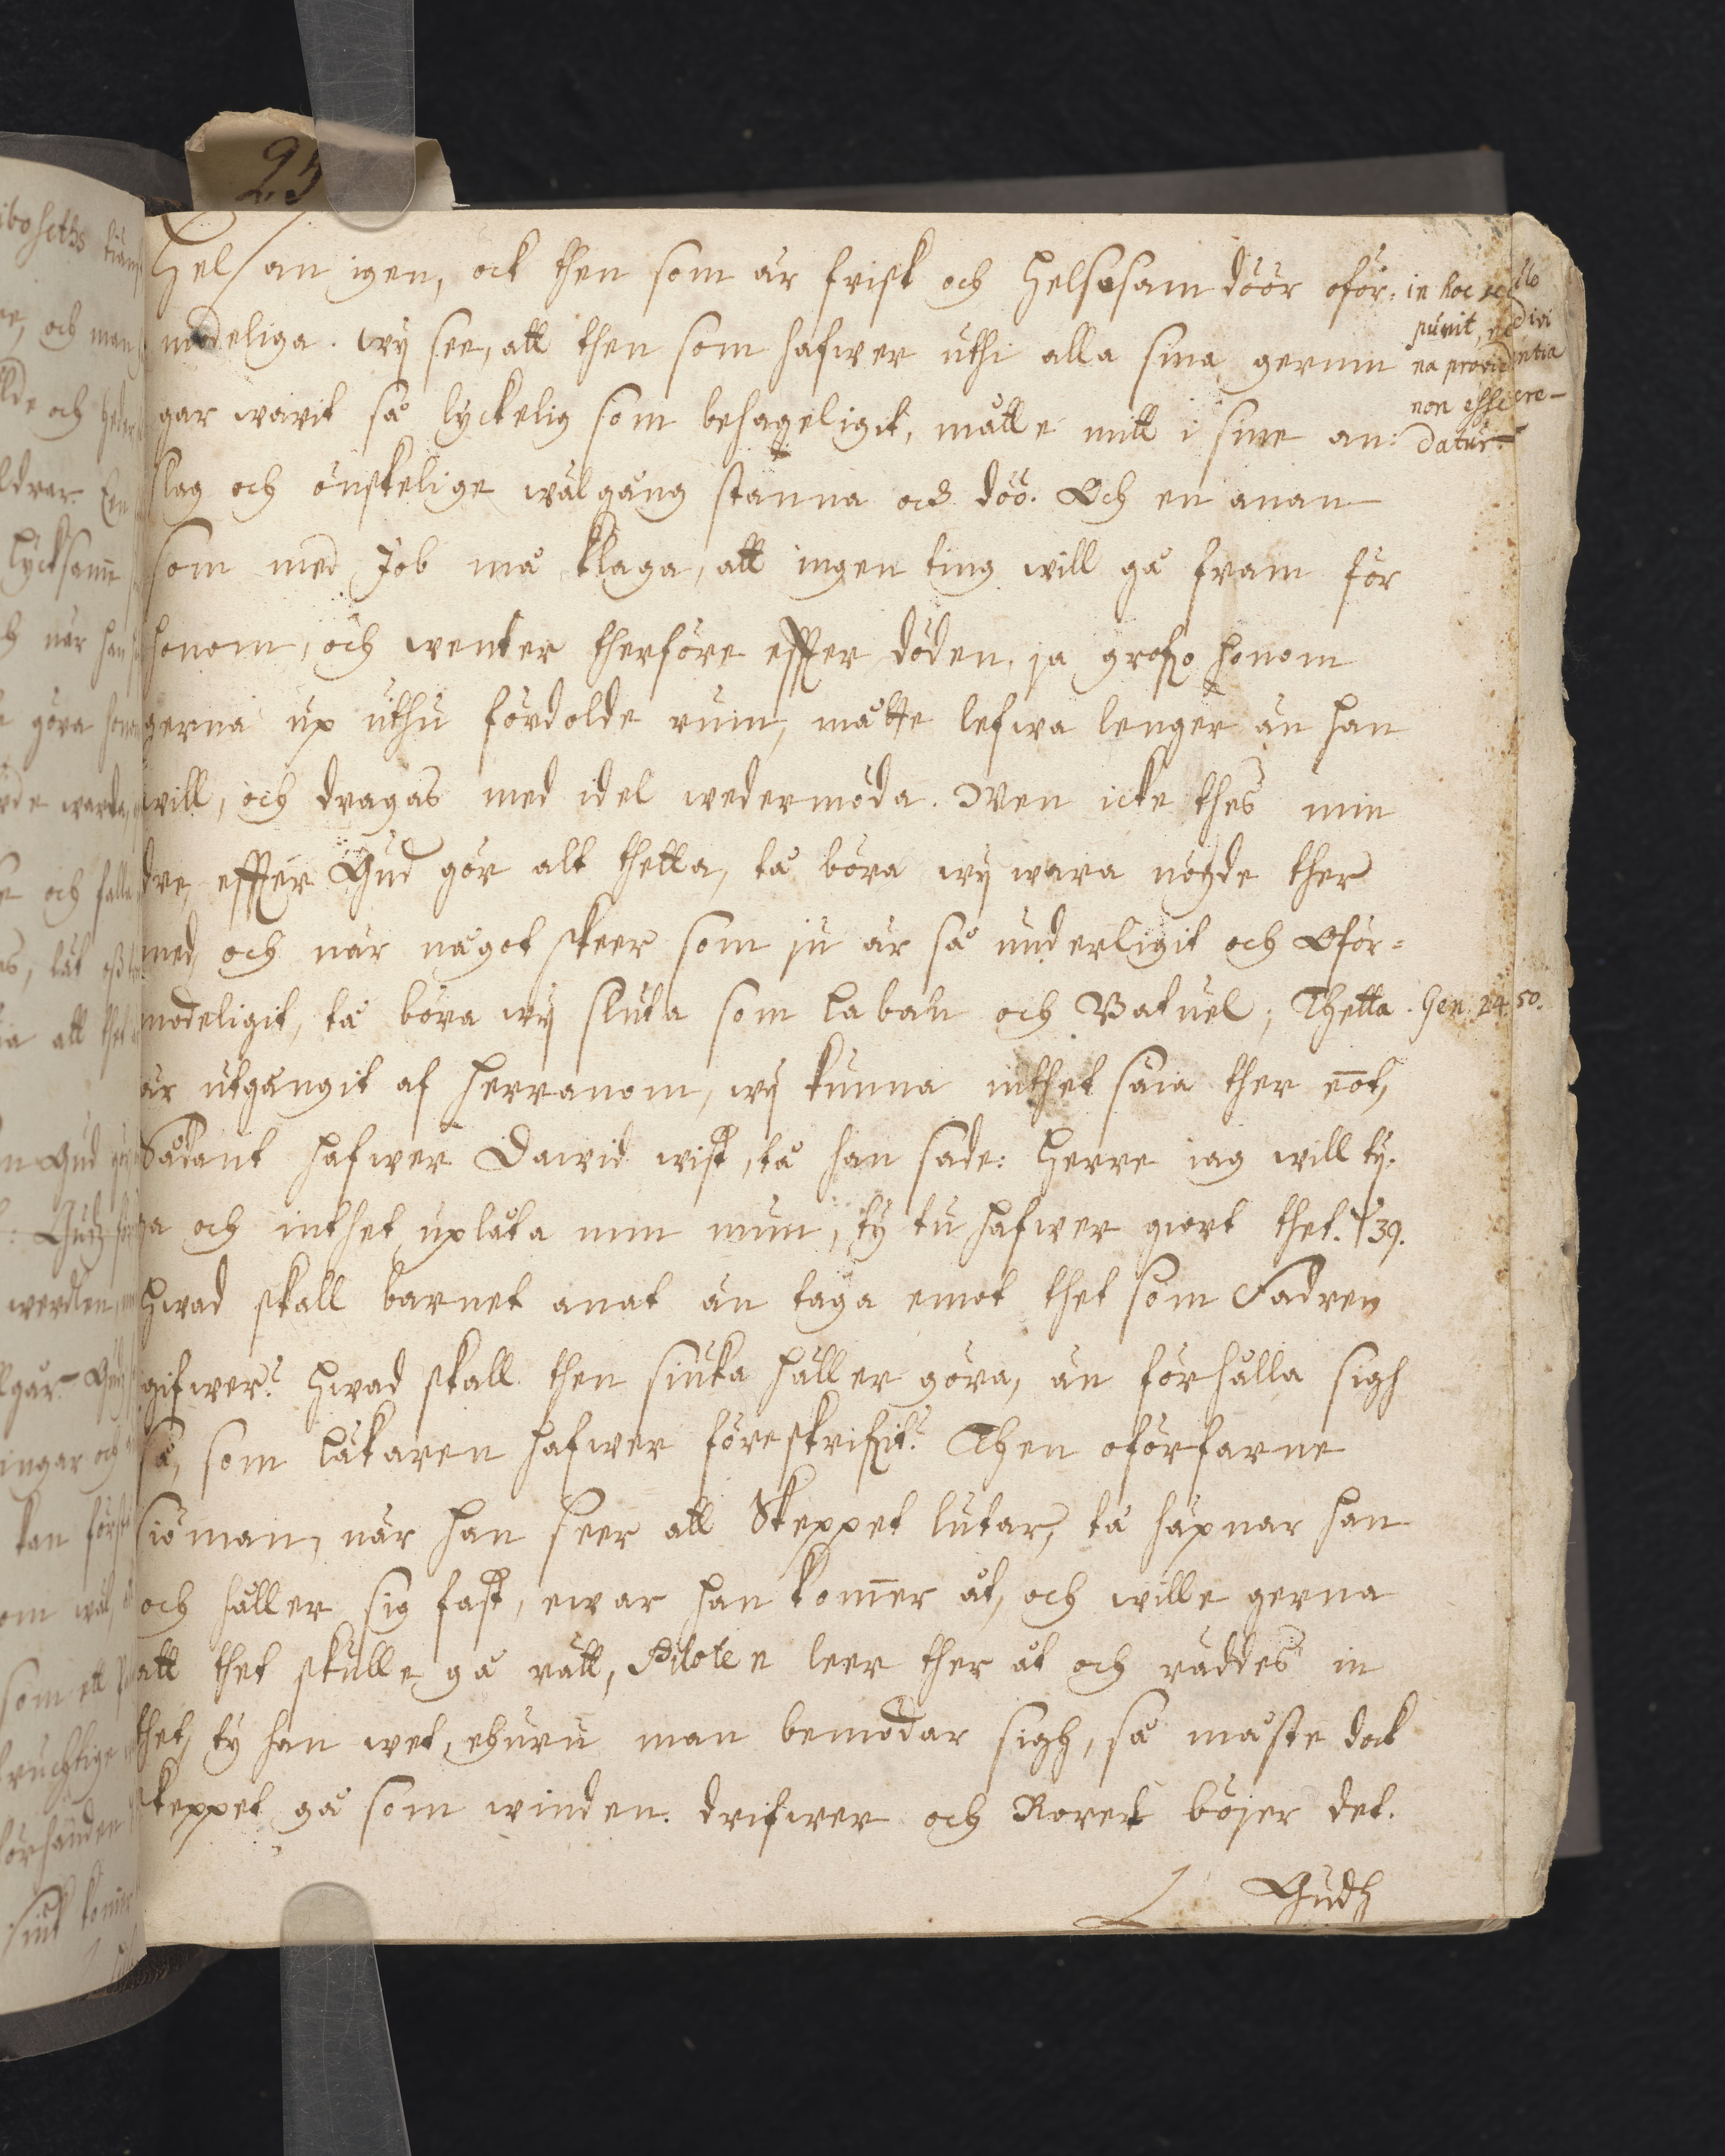 25
Helsan igen, ock then som är frisk och helsosam döör oför-
modeliga. wij see, att then som hafwer uthi alla sina gernin
gar warit så lyckelig som behageligit, måtte mitt i sine an-
slag och önskelige wälgång stanna och döö. Och en anan
som med Job må klaga, att ingen ting will gå fram för
honom, och wenter therföre effter döden, ja grofwo honom
gerna up uthu fördolde rum, måtte lefwa lenger än han
will, och dragas med idel wedermöda. Men icke thes min
dre, effter Gud gör alt thetta, tå böra wij wara nögde ther
med, och när något skeer som ju är så underligit och Oför-
modeligit, tå böra wij sluta som Laban och Batuel; Thetta
är utgångit af Herranom, wij kunna inthet säia ther emot,
Sådant hafwer David wist, tå han sade: Herre iag will ty-
ga och inthet uplåta min mun, ty tu hafwer giort thet. ψ 39.
Hwad skall barnet anat än taga emot thet som Fadren
gifwer? Hwad skall then siuka häller göra, än förhålla sigh
så, som läkaren hafwer föreskrifwit? Then oförfarne
siöman, när han seer att Skeppet lutar, tå häpnar han
och håller sig fast, ewar han kommer åt, och wille gerna
att thet skulle gå rätt, Piloten leer ther åt och räddes in
thet, ty han wet, ehuru man bemödar sigh, så måste dock
skeppet gå som winden drifwer och Roret böjer det.
Gudz
in hoc seculo
punit,
na providentia
non esse cre-
datur.
Gen. 24. 50.